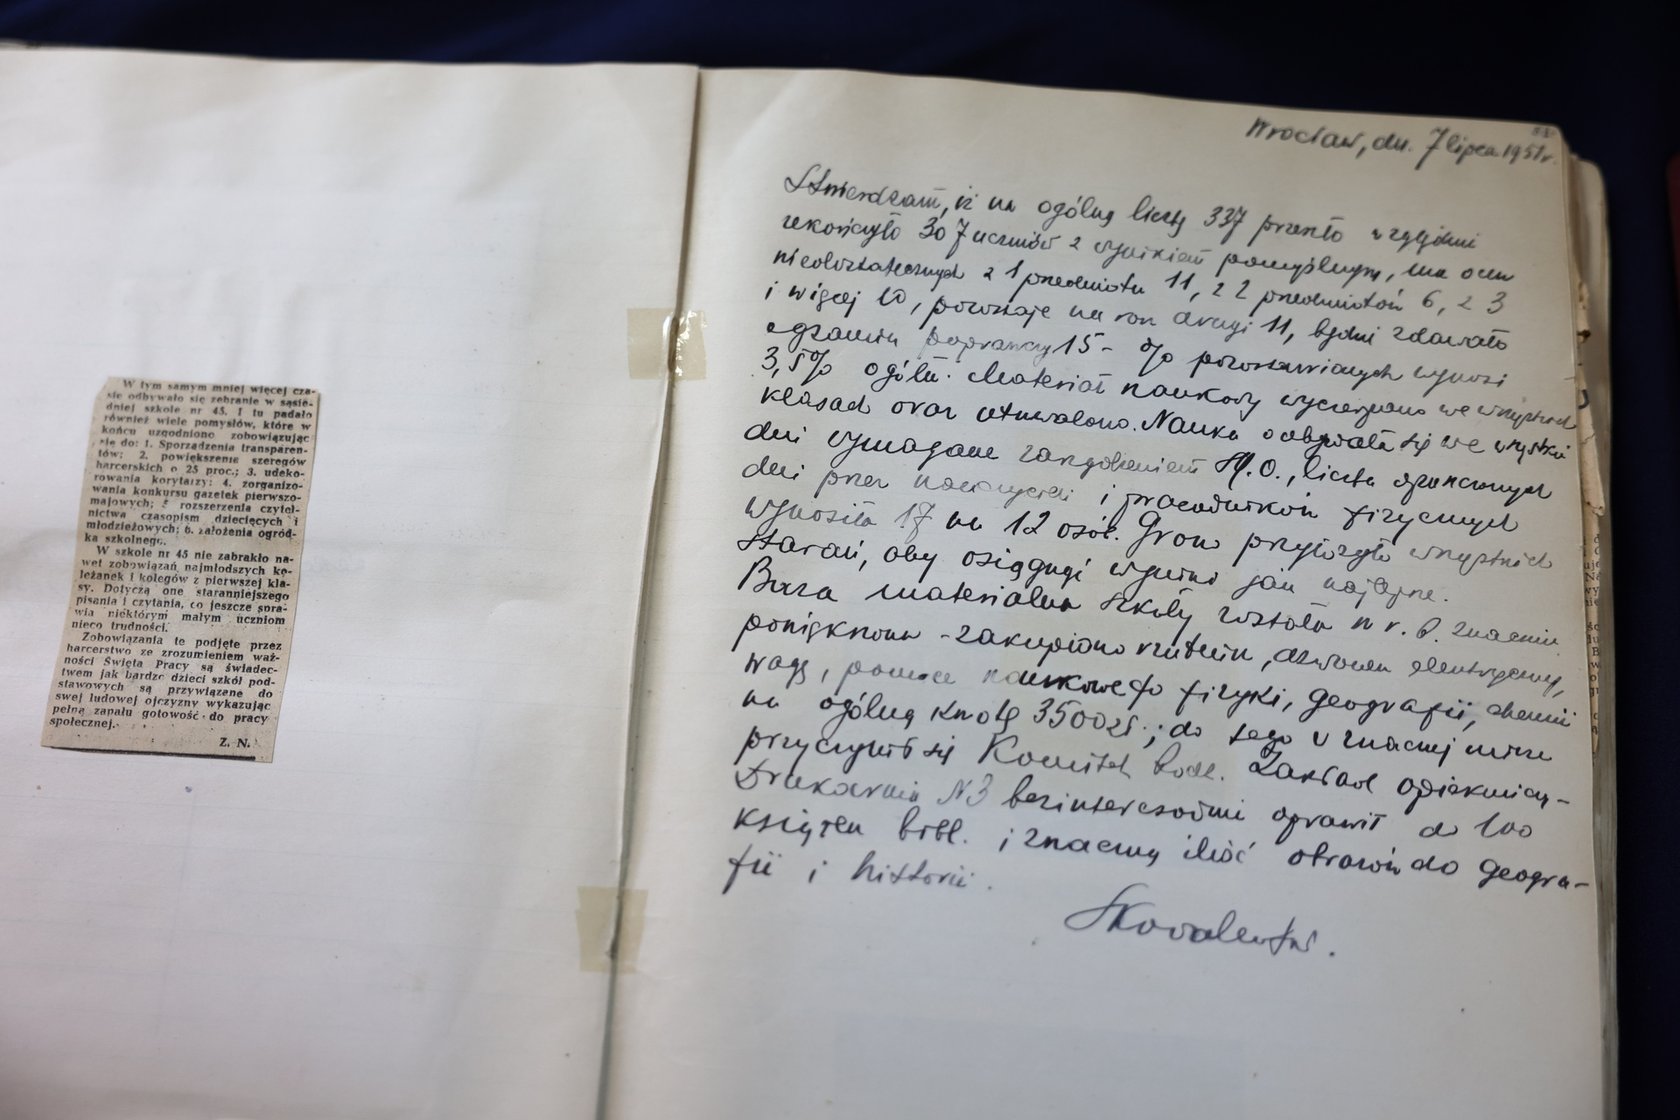 W tym samym mniej więcej cza-
sie odbywało się zebranie w sąsie-
dniej szkole nr 45. I tu padało
również wiele pomysłów, które w
końcu uzgodniono zobowiązując
się do: 1. Sporządzenia transparen-
tów; 2. powiększenia szeregów
harcerskich o 25 proc.; 3. udeko-
rowania korytarzy; 4. zorganizo-
wania konkursu gazetek pierwszo-
majowych; 5 rozszerzenia czytel-
nictwa czasopism dziecięcych i
młodzieżowych; 6. założenia ogród-
ka szkolnego.
W szkole nr 45 nie zabrakło na-
wet zobowiązań najmłodszych ko-
leżanek i kolegów z pierwszej kla-
sy. Dotyczą one staranniejszego
pisania i czytania, co jeszcze spra-
wia niektórym małym uczniom
nieco trudności.
Zobowiązania te podjęte przez
harcerstwo ze zrozumieniem waż-
ności Święta Pracy są świadec-
twem jak bardzo dzieci szkół pod-
stawowych są przywiązane do
swej ludowej ojczyzny wykazując
pełną zapału gotowość do pracy
społecznej.
Z. N.
Wrocław, dn. 7 lipca 1951 r.
Stwierdzam, iż na ogólną liczbę 337 przeszło względnie
ukończyło 307 uczniów z wynikiem pomyślnym, ma ocen
niedostatecznych z 1 przedmiotu 11, z 2 przedmiotów 6, z 3
i więcej 10, pozostaje na rok drugi 11, będzie zdawało
egzamin poprawczy 15 - % pozostawionych wynosi
3,5% ogółu. Materiał naukowy wyczerpano we wszystkich
klasach oraz utrwalono. Nauka odbywała się we wszystkie
dni wymagane zarządzeniem M.O., liczba opuszczonych
dni przez nauczycieli i pracowników fizycznych
wynosiła 17 na 12 osób. Grono przyłożyło wszystkich
starań, aby osiągnąć wyniki jak najlepsze.
Baza materialna szkoły została w r. b. znacznie
powiększona - zakupiono rzutnik, dzwonek elektryczny,
wagę, pomoce naukowe do fizyki, geografii, chemii
na ogólną kwotę 3500 zł.; do tego w znacznej mierze
przyczynił się Komitet Rodz. Zakład opiekuńczy -
Drukarnia N3 bezinteresownie oprawił do 100
książek bibl. i znaczną ilość obrazów do geogra-
fii i historii.